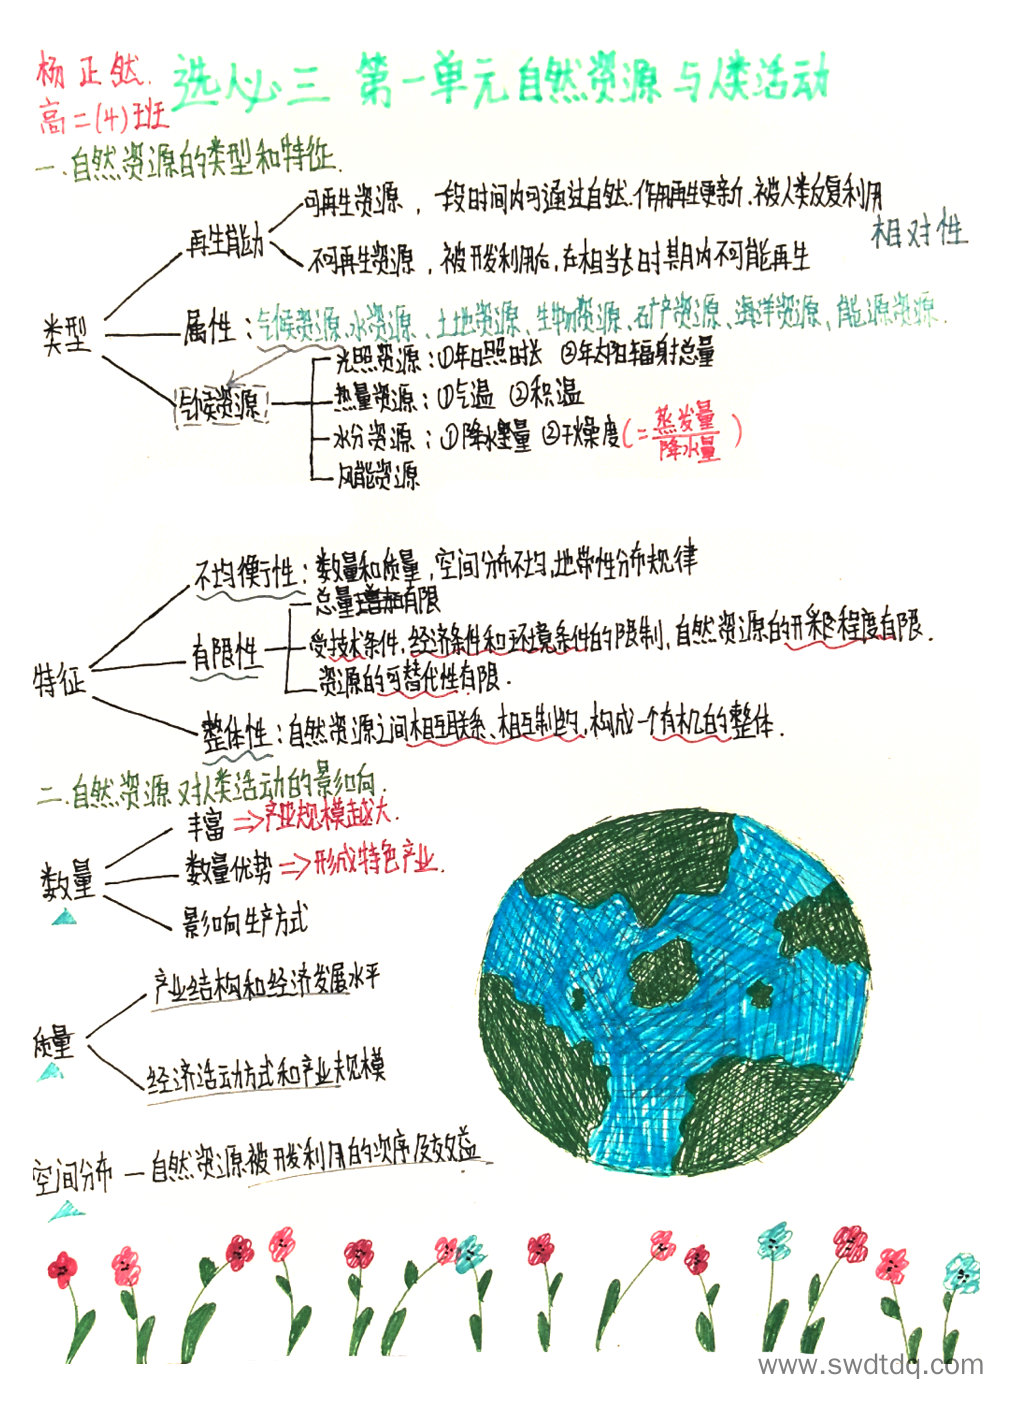 杨正然.
高二(4)班
选必三 第一单元自然资源与人类活动
一.自然资源的类型和特征.
类型
再生能力
可再生资源，一段时间内可通过自然作用再生更新、被人类反复利用
不可再生资源，被开发利用后，在相当长时期内不可能再生
相对性
属性：气候资源、水资源、土地资源、生物资源、矿产资源、海洋资源、能源资源.
气候资源
光照资源：①年日照时长 ②年太阳辐射总量
热量资源：①气温 ②积温
水分资源：①降水量 ②干燥度(=蒸发量/降水量)
风能资源
特征
不均衡性：数量和质量，空间分布不均，地带性分布规律
有限性
总量有限
受技术条件、经济条件和环境条件的限制，自然资源的开采程度有限.
资源的可替代性有限.
整体性：自然资源之间相互联系、相互制约，构成一个有机的整体.
二.自然资源对人类活动的影响.
数量
丰富⇒产业规模越大.
数量优势⇒形成特色产业.
影响生产方式
质量
产业结构和经济发展水平
经济活动方式和产业规模
空间分布 — 自然资源被开发利用的次序及效益
www.swdtdq.com